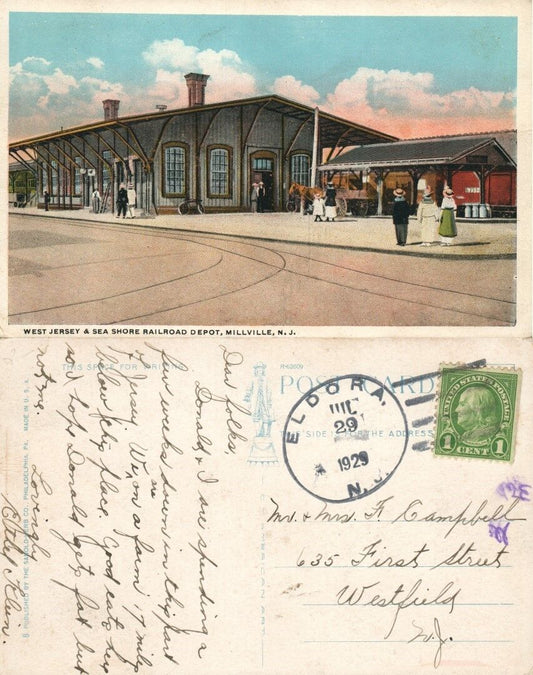 WEST JERSEY & SEA SHORE RAILROAD DEPOT, MILLVILLE, N. J.
THIS SPACE FOR WRITING
R-63609
POST CARD
THIS SIDE IS FOR THE ADDRESS
ELDORA.
JUL
29
1929
N.J.
UNITED STATES POSTAGE
FRANKLIN
1 CENT 1
Dear folks,
Donald & I are spending a
few weeks down in this part
of Jersey. We're on a farm 17 miles
below this place. Good eats here
so hope Donald gets fat but
not me.
Lovingly
Mr. & Mrs. F. Campbell
635 First Street
Westfield
N.J.
PUBLISHED BY THE SANDELOWSKY CO., PHILADELPHIA, PA.
MADE IN U. S. A.